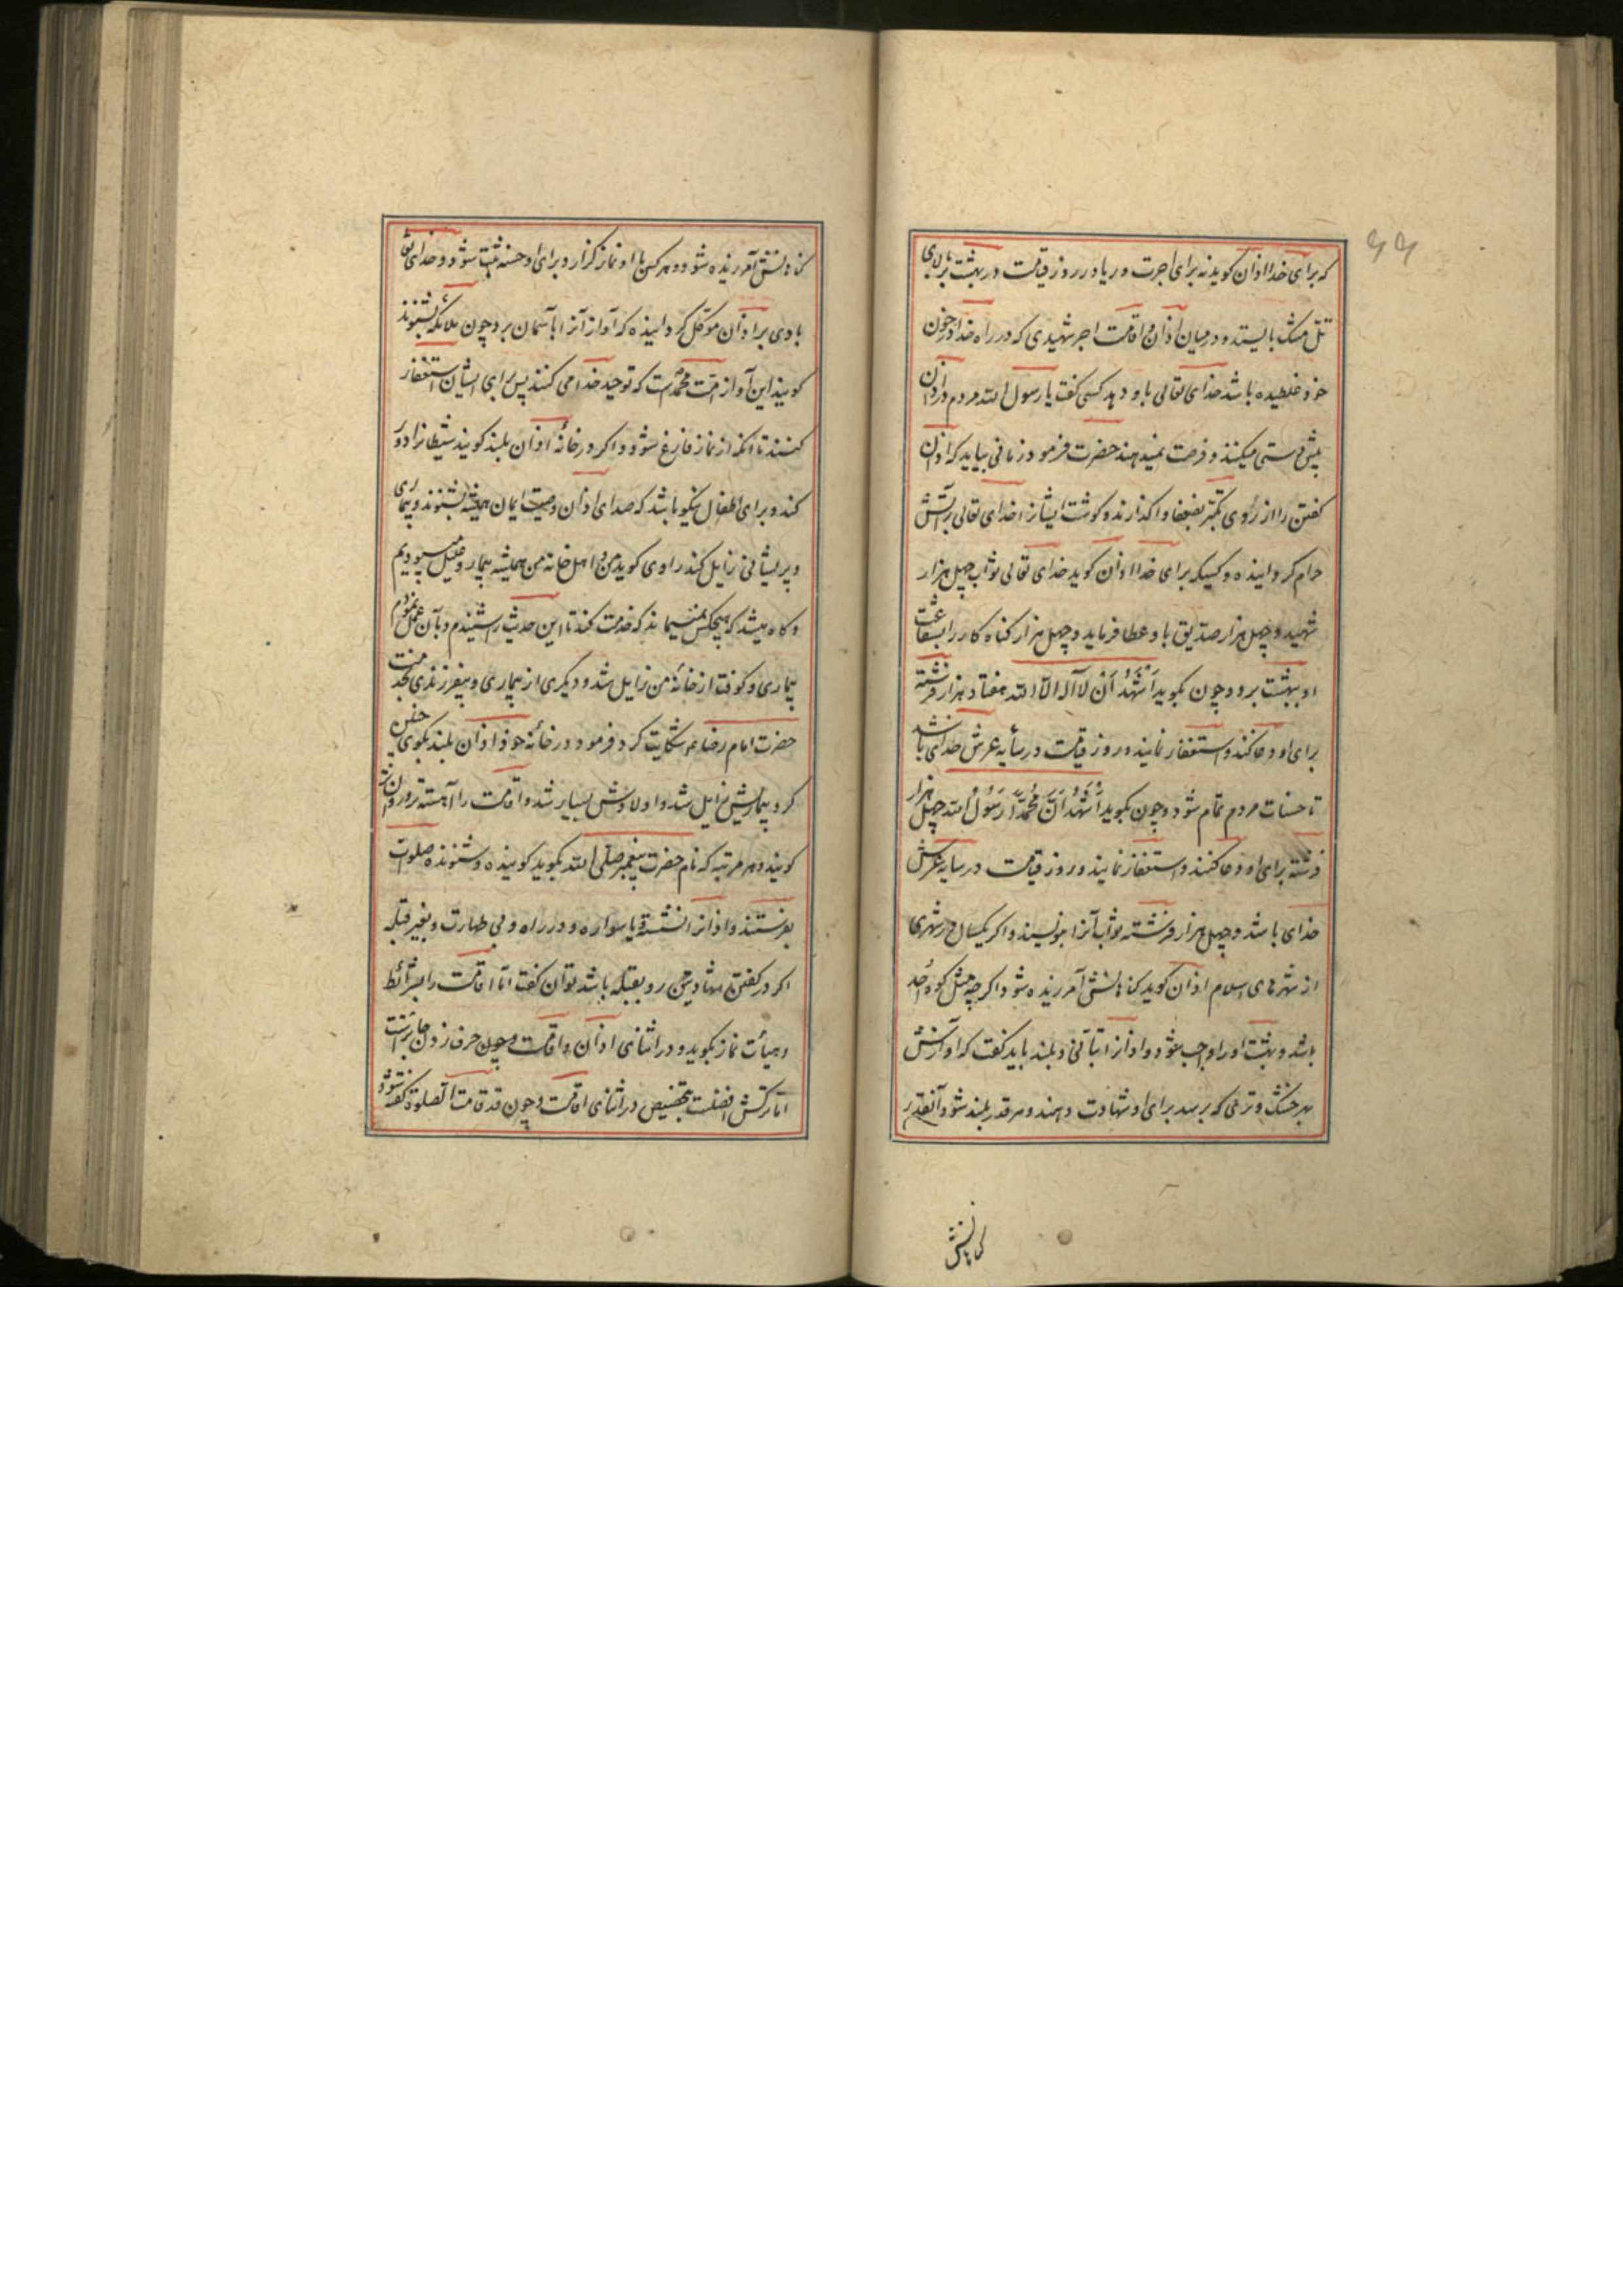 ۶۶
که برای خدا اذان کوید نه برای اجرت و ریا در روز قیامت در بهشت بر بالای
تل مشک بایستد و در میان اذان و اقامت اجر شهیدی که در راه خدا در خون
خود غلطیده باشد خدای تعالی باو دهد کسی کفت یا رسول الله مردم در اذان
پیش دستی میکنند و فرصت نمیدهند حضرت فرمود زمانی بیاید که اذان
کفتن را از روی تکبر بضعفا واکذارند و کوشت ایشانرا خدای تعالی بر آتش
حرام کردانیده و کسیکه برای خدا اذان کوید خدای تعالی ثواب چهل هزار
شهید و چهل هزار صدیق باو عطا فرماید و چهل هزار کناه کار را بشفاعت
او ببهشت برد و چون بکوید اَشْهَدُ اَنْ لا آله الّا الله هفتاد هزار فرشته
برای او دعا کنند و استغفار نمایند و روز قیامت در سأیه عرش خدای باشد
تا حسنات مردم تمام شود و چون بکوید اَشْهَدُ اَنَّ مُحَمَّدًا رَسُولُ الله چهل هزار
فرشته برای او دعا کنند و استغفار نمایند و روز قیامت در سایه عرش
خدای باشد و چهل هزار فرشته ثواب آنرا بنویسند و اکر یکسال در شهری
از شهرهای اسلام اذان کوید کناهانش آمرزیده شود اکرچه مثل کوه اُحد
باشد و بهشت اورا واجب شود و اذانرا بتأنی و بلند باید کفت که آوازش
بهر خشک و تری که برسد برای او شهادت دهند و هر قدر بلند شود آنقدر
کناهانش
کناهانش آمرزیده شود و هر کس با او نماز کزارد برای او حسنه ثبت شود و خدای تعالی
بادی بر اذان موکّل کردانیده که آواز آنرا بآسمان برد چون ملائکه بشنوند
کویند این آواز امّت محمّد است که توحید خدا می کنند پس برای ایشان استغفار
کنند تا آنکه از نماز فارغ شود و اکر در خانه اذان بلند کویند شیطانرا دور
کند و برای اطفال نیکو باشد که صدای اذان و صیت ایمان همیشه بشنوند و بیماری
و پریشانی زایل کند راوی کوید من و اهل خانه من همیشه بیمار و علیل میبودیم
و کاه میشد که هیچکس نمیماند که خدمت کند تا این حدیث را شنیدم و بآن عمل نمودم
بیماری و کوفت از خانهٔ من زایل شد و دیکری از بیماری و بیفرزندی بخدمت
حضرت امام رضا عم شکایت کرد فرمود در خانهٔ خود اذان بلند بکوی چنین
کرد بیماریش زایل شد و اولادش بسیار شد و اقامت را آهسته‌تر و روان‌تر
کویند و هر مرتبه که نام حضرت پیغمبر صلّی الله بکوید کوینده و شنونده صلوات
بفرستند و اذانرا نشسته و یا سواره و در راه و بی طهارت و بغیر قبله
اکر در کفتن شهادتین رو بقبله باشد توان کفت امّا اقامت را بشرائط
و هیأت نماز بکوید و در اثنای اذان و اقامت حرف زدن جائزست
امّا ترکش افضلست بتخصیص در اثنای اقامت و چون قد قامت الصلوة کفته شود